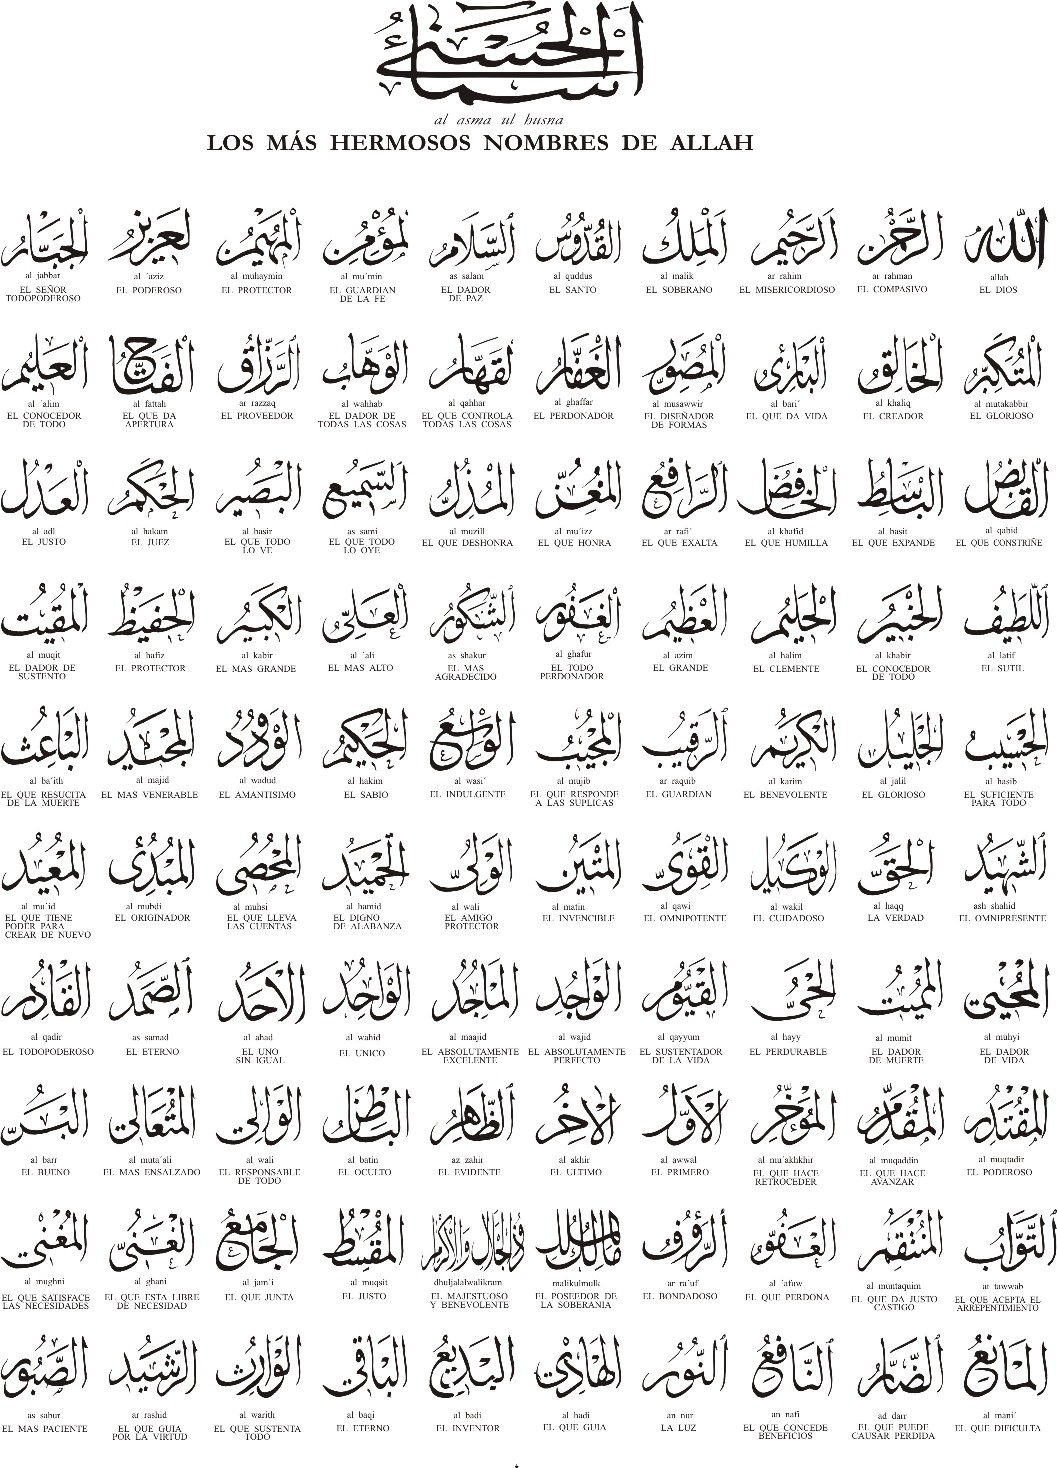 أسماء الحسنى
al asma ul husna
LOS MÁS HERMOSOS NOMBRES DE ALLAH
الله
allah
EL DIOS
الرحمن
ar rahman
EL COMPASIVO
الرحيم
ar rahim
EL MISERICORDIOSO
الملك
al malik
EL SOBERANO
القدوس
al quddus
EL SANTO
السلام
as salam
EL DADOR
DE PAZ
المؤمن
al mu´min
EL GUARDIAN
DE LA FE
المهيمن
al muhaymin
EL PROTECTOR
العزيز
al ´aziz
EL PODEROSO
الجبار
al jabbar
EL SEÑOR
TODOPODEROSO
المتكبر
al mutakabbir
EL GLORIOSO
الخالق
al khaliq
EL CREADOR
البارئ
al bari´
EL QUE DA VIDA
المصور
al musawwir
EL DISEÑADOR
DE FORMAS
الغفار
al ghaffar
EL PERDONADOR
القهار
al qahhar
EL QUE CONTROLA
TODAS LAS COSAS
الوهاب
al wahhab
EL DADOR DE
TODAS LAS COSAS
الرزاق
ar razzaq
EL PROVEEDOR
الفتاح
al fattah
EL QUE DA
APERTURA
العليم
al ´alim
EL CONOCEDOR
DE TODO
القابض
al qabid
EL QUE CONSTRIÑE
الباسط
al basit
EL QUE EXPANDE
الخافض
al khafid
EL QUE HUMILLA
الرافع
ar rafi´
EL QUE EXALTA
المعز
al mu´izz
EL QUE HONRA
المذل
al muzill
EL QUE DESHONRA
السميع
as sami´
EL QUE TODO
LO OYE
البصير
al basir
EL QUE TODO
LO VE
الحكم
al hakam
EL JUEZ
العدل
al adl
EL JUSTO
اللطيف
al latif
EL SUTIL
الخبير
al khabir
EL CONOCEDOR
DE TODO
الحليم
al halim
EL CLEMENTE
العظيم
al azim
EL GRANDE
الغفور
al ghafur
EL TODO
PERDONADOR
الشكور
as shakur
EL MAS
AGRADECIDO
العلي
al ´ali
EL MAS ALTO
الكبير
al kabir
EL MAS GRANDE
الحفيظ
al hafiz
EL PROTECTOR
المقيت
al muqit
EL DADOR DE
SUSTENTO
الحسيب
al hasib
EL SUFICIENTE
PARA TODO
الجليل
al jalil
EL GLORIOSO
الكريم
al karim
EL BENEVOLENTE
الرقيب
ar raquib
EL GUARDIAN
المجيب
al mujib
EL QUE RESPONDE
A LAS SUPLICAS
الواسع
al wasi´
EL INDULGENTE
الحكيم
al hakim
EL SABIO
الودود
al wadud
EL AMANTISIMO
المجيد
al majid
EL MAS VENERABLE
الباعث
al ba´ith
EL QUE RESUCITA
DE LA MUERTE
الشهيد
ash shahid
EL OMNIPRESENTE
الحق
al haqq
LA VERDAD
الوكيل
al wakil
EL CUIDADOSO
القوي
al qawi
EL OMNIPOTENTE
المتين
al matin
EL INVENCIBLE
الولي
al wali
EL AMIGO
PROTECTOR
الحميد
al hamid
EL DIGNO
DE ALABANZA
المحصي
al muhsi
EL QUE LLEVA
LAS CUENTAS
المبدئ
al mubdi
EL ORIGINADOR
المعيد
al mu´id
EL QUE TIENE
PODER PARA
CREAR DE NUEVO
المحيي
al muhyi
EL DADOR
DE VIDA
المميت
al mumit
EL DADOR
DE MUERTE
الحي
al hayy
EL PERDURABLE
القيوم
al qayyum
EL SUSTENTADOR
DE LA VIDA
الواجد
al wajid
EL ABSOLUTAMENTE
PERFECTO
الماجد
al maajid
EL ABSOLUTAMENTE
EXCELENTE
الواحد
al wahid
EL UNICO
الاحد
al ahad
EL UNO
SIN IGUAL
الصمد
as samad
EL ETERNO
القادر
al qadir
EL TODOPODEROSO
المقتدر
al muqtadir
EL PODEROSO
المقدم
al muqaddin
EL QUE HACE
AVANZAR
المؤخر
al mu´akhkhir
EL QUE HACE
RETROCEDER
الأول
al awwal
EL PRIMERO
الآخر
al akhir
EL ULTIMO
الظاهر
az zahir
EL EVIDENTE
الباطن
al batin
EL OCULTO
الوالي
al wali
EL RESPONSABLE
DE TODO
المتعالي
al muta´ali
EL MAS ENSALZADO
البر
al barr
EL BUENO
التواب
at tawwab
EL QUE ACEPTA EL
ARREPENTIMIENTO
المنتقم
al muntaquim
EL QUE DA JUSTO
CASTIGO
العفو
al ´afuw
EL QUE PERDONA
الرؤوف
ar ra´uf
EL BONDADOSO
مالك الملك
malikulmulk
EL POSEEDOR DE
LA SOBERANIA
ذو الجلال والاكرام
dhuljalalwalikram
EL MAJESTUOSO
Y BENEVOLENTE
المقسط
al muqsit
EL JUSTO
الجامع
al jam´i
EL QUE JUNTA
الغني
al ghani
EL QUE ESTA LIBRE
DE NECESIDAD
المغني
al mughni
EL QUE SATISFACE
LAS NECESIDADES
المانع
al mani´
EL QUE DIFICULTA
الضار
ad darr
EL QUE PUEDE
CAUSAR PERDIDA
النافع
an nafi
EL QUE CONCEDE
BENEFICIOS
النور
an nur
LA LUZ
الهادي
al hadi
EL QUE GUIA
البديع
al badi
EL INVENTOR
الباقي
al baqi
EL ETERNO
الوارث
al warith
EL QUE SUSTENTA
TODO
الرشيد
ar rashid
EL QUE GUIA
POR LA VIRTUD
الصبور
as sabur
EL MAS PACIENTE